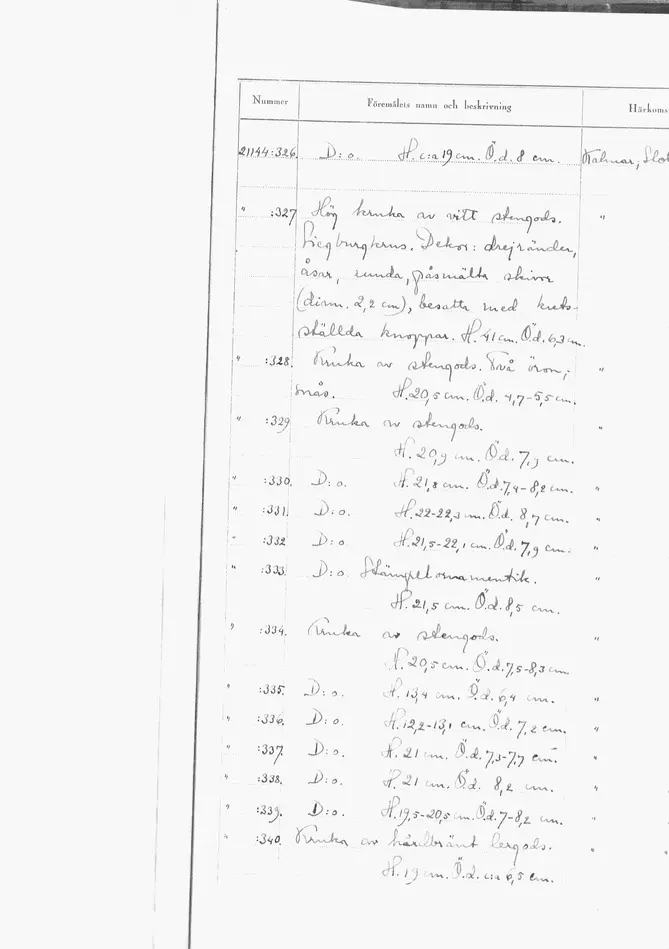 Nummer Föremålets namn och beskrivning Härkoms
21144:326. D:o. H. c:a 19 cm. Ö.d. 8 cm. Kalmar, Slot
" :327 Hög kruka av vitt stengods. "
Siegburgkrus. Dekor: drejränder,
åsar, runda, påsmälta skivor
(diam. 2,2 cm), besatta med krets-
ställda knoppar. H. 41 cm. Ö.d. 6,3 cm.
" :328. Kruka av stengods. Två öron; "
snås. H. 20,5 cm. Ö.d. 4,7-5,5 cm.
" :329 Kruka av stengods. "
H. 20,9 cm. Ö.d. 7,3 cm.
" :330. D:o. H. 21,8 cm. Ö.d. 7,4-8,2 cm. "
" :331. D:o. H. 22-22,3 cm. Ö.d. 8,7 cm. "
" :332 D:o. H. 21,5-22,1 cm. Ö.d. 7,9 cm. "
" :333. D:o. Stämpelornamentik. "
H. 21,5 cm. Ö.d. 8,5 cm.
" :334. Kruka av stengods. "
H. 20,5 cm. Ö.d. 7,5-8,3 cm
" :335. D:o. H. 13,4 cm. Ö.d. 6,4 cm. "
" :336. D:o. H. 12,2-13,1 cm. Ö.d. 7,2 cm. "
" :337. D:o. H. 21 cm. Ö.d. 7,3-7,7 cm. "
" :338. D:o. H. 21 cm. Ö.d. 8,2 cm. "
" :339. D:o. H. 19,5-20,5 cm. Ö.d. 7-8,2 cm. "
" :340. Kruka av hårdbränt lergods. " "
H. 19 cm. Ö.d. c:a 6,5 cm.